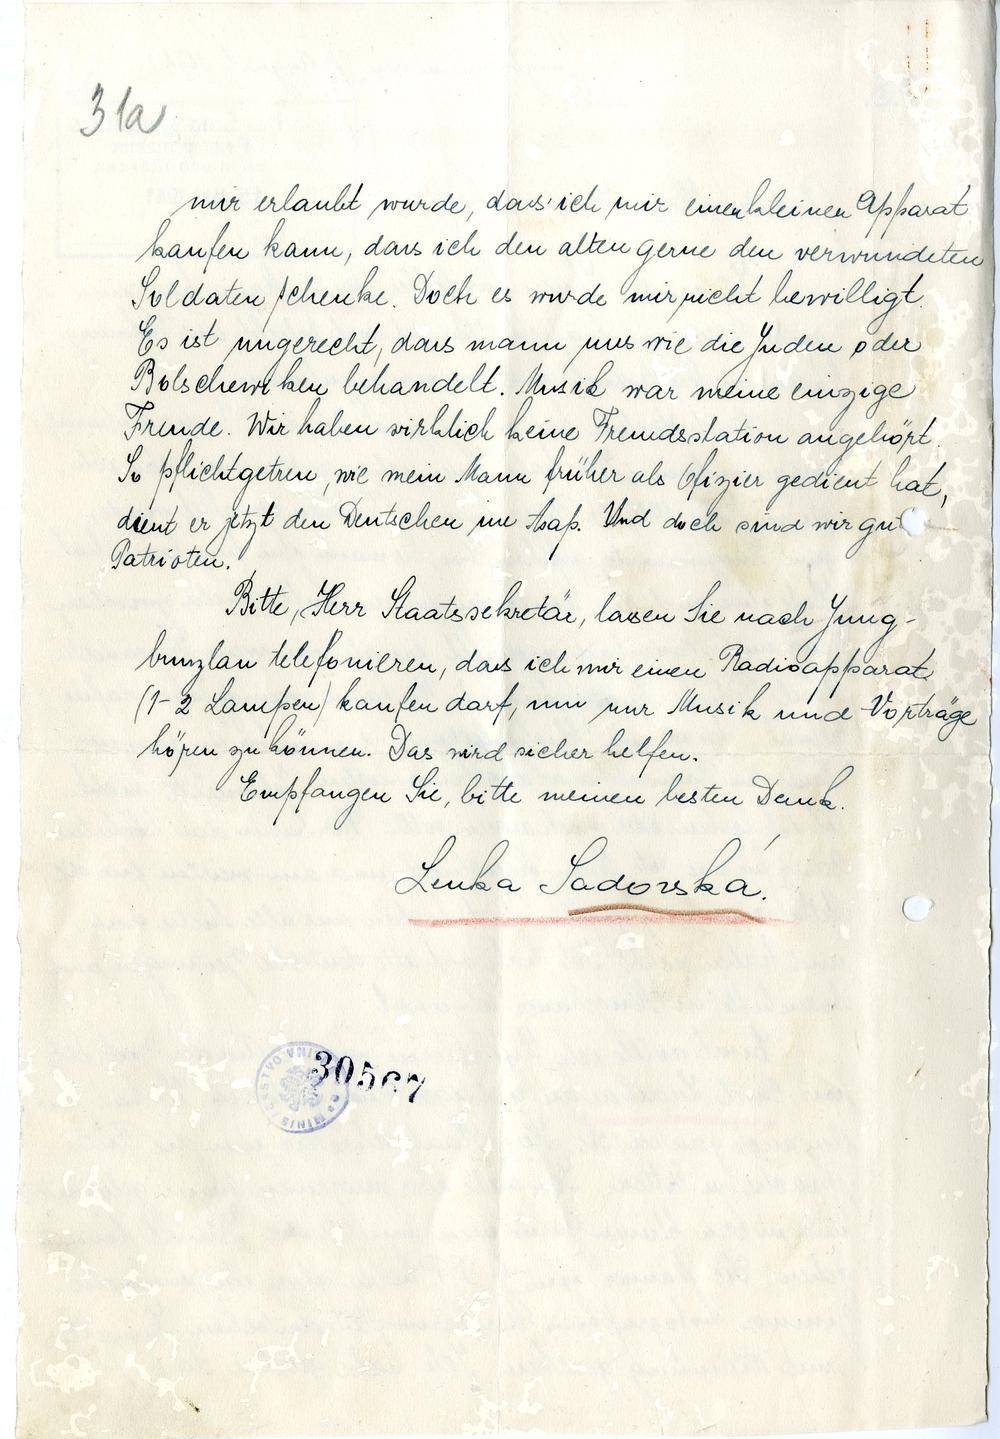 31a
mir erlaubt wurde, dass ich mir einen kleinen Apparat
kaufen kann, dass ich den alten gerne den verwundeten
Soldaten schenke. Doch es wurde mir nicht bewilligt.
Es ist ungerecht, dass mann uns wie die Juden oder
Bolschewiken behandelt. Musik war meine einzige
Freude. Wir haben wirklich keine Fremdsstation angehört.
So pflichtgetreu, wie mein Mann früher als Ofizier gedient hat,
dient er jetzt den Deutschen im Asap. Und doch sind wir gut
Patrioten.
Bitte, Herr Staatssekretär, lassen Sie nach Jung-
bunzlau telefonieren, dass ich mir einen Radioapparat
(1-2 Lampen) kaufen darf, um nur Musik und Vorträge
hören zu können. Das wird sicher helfen.
Empfangen Sie, bitte meinen besten Dank.
Lenka Sadovská.
30567